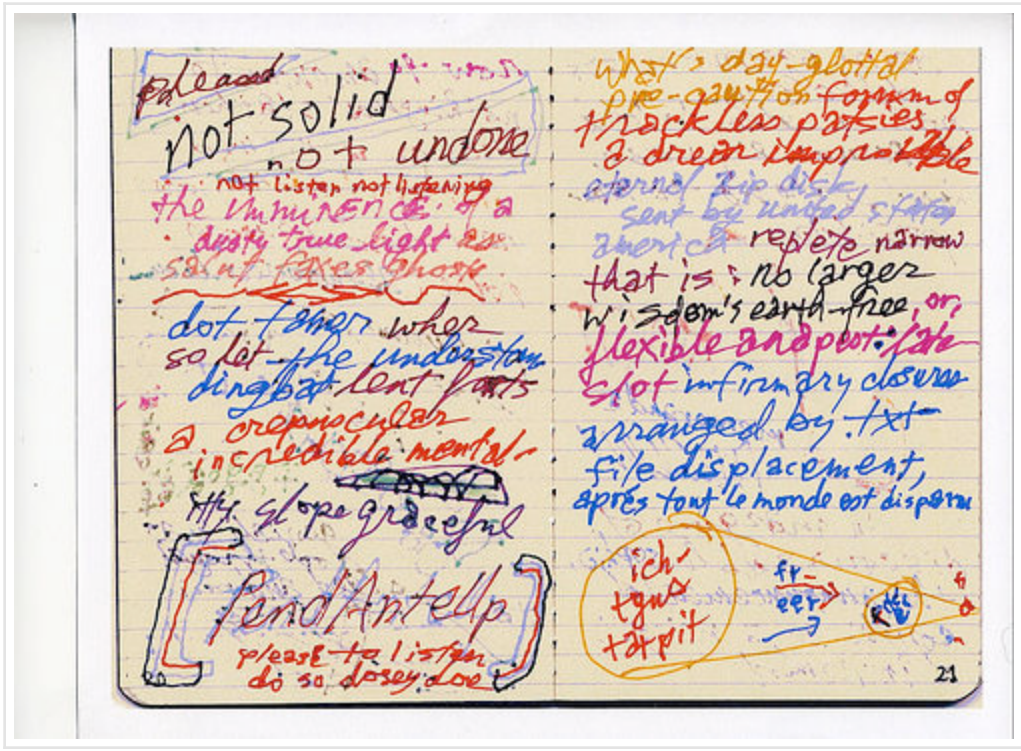 pleased
not solid
not undone
not listen not listening
the imminence of a
dusty true light as
saint faxes ghost
dot tamer when
so let the understan
dingbat lent fonts
a crepuscular
incredible mental-
ity slope graceful
PendAntelUp
please to listen
do so dosey doe
what's day-glottal
pre-gaution forum of
trackless patsies
a drear improbable
eternal zip disk,
sent by united states
america replete narrow
that is: no larger
wisdom's earth-free, or,
flexible and
slot infirmary closures
arranged by .txt
file displacement,
après tout le monde est disparu
ich-
tarpit
fr-
eer
21